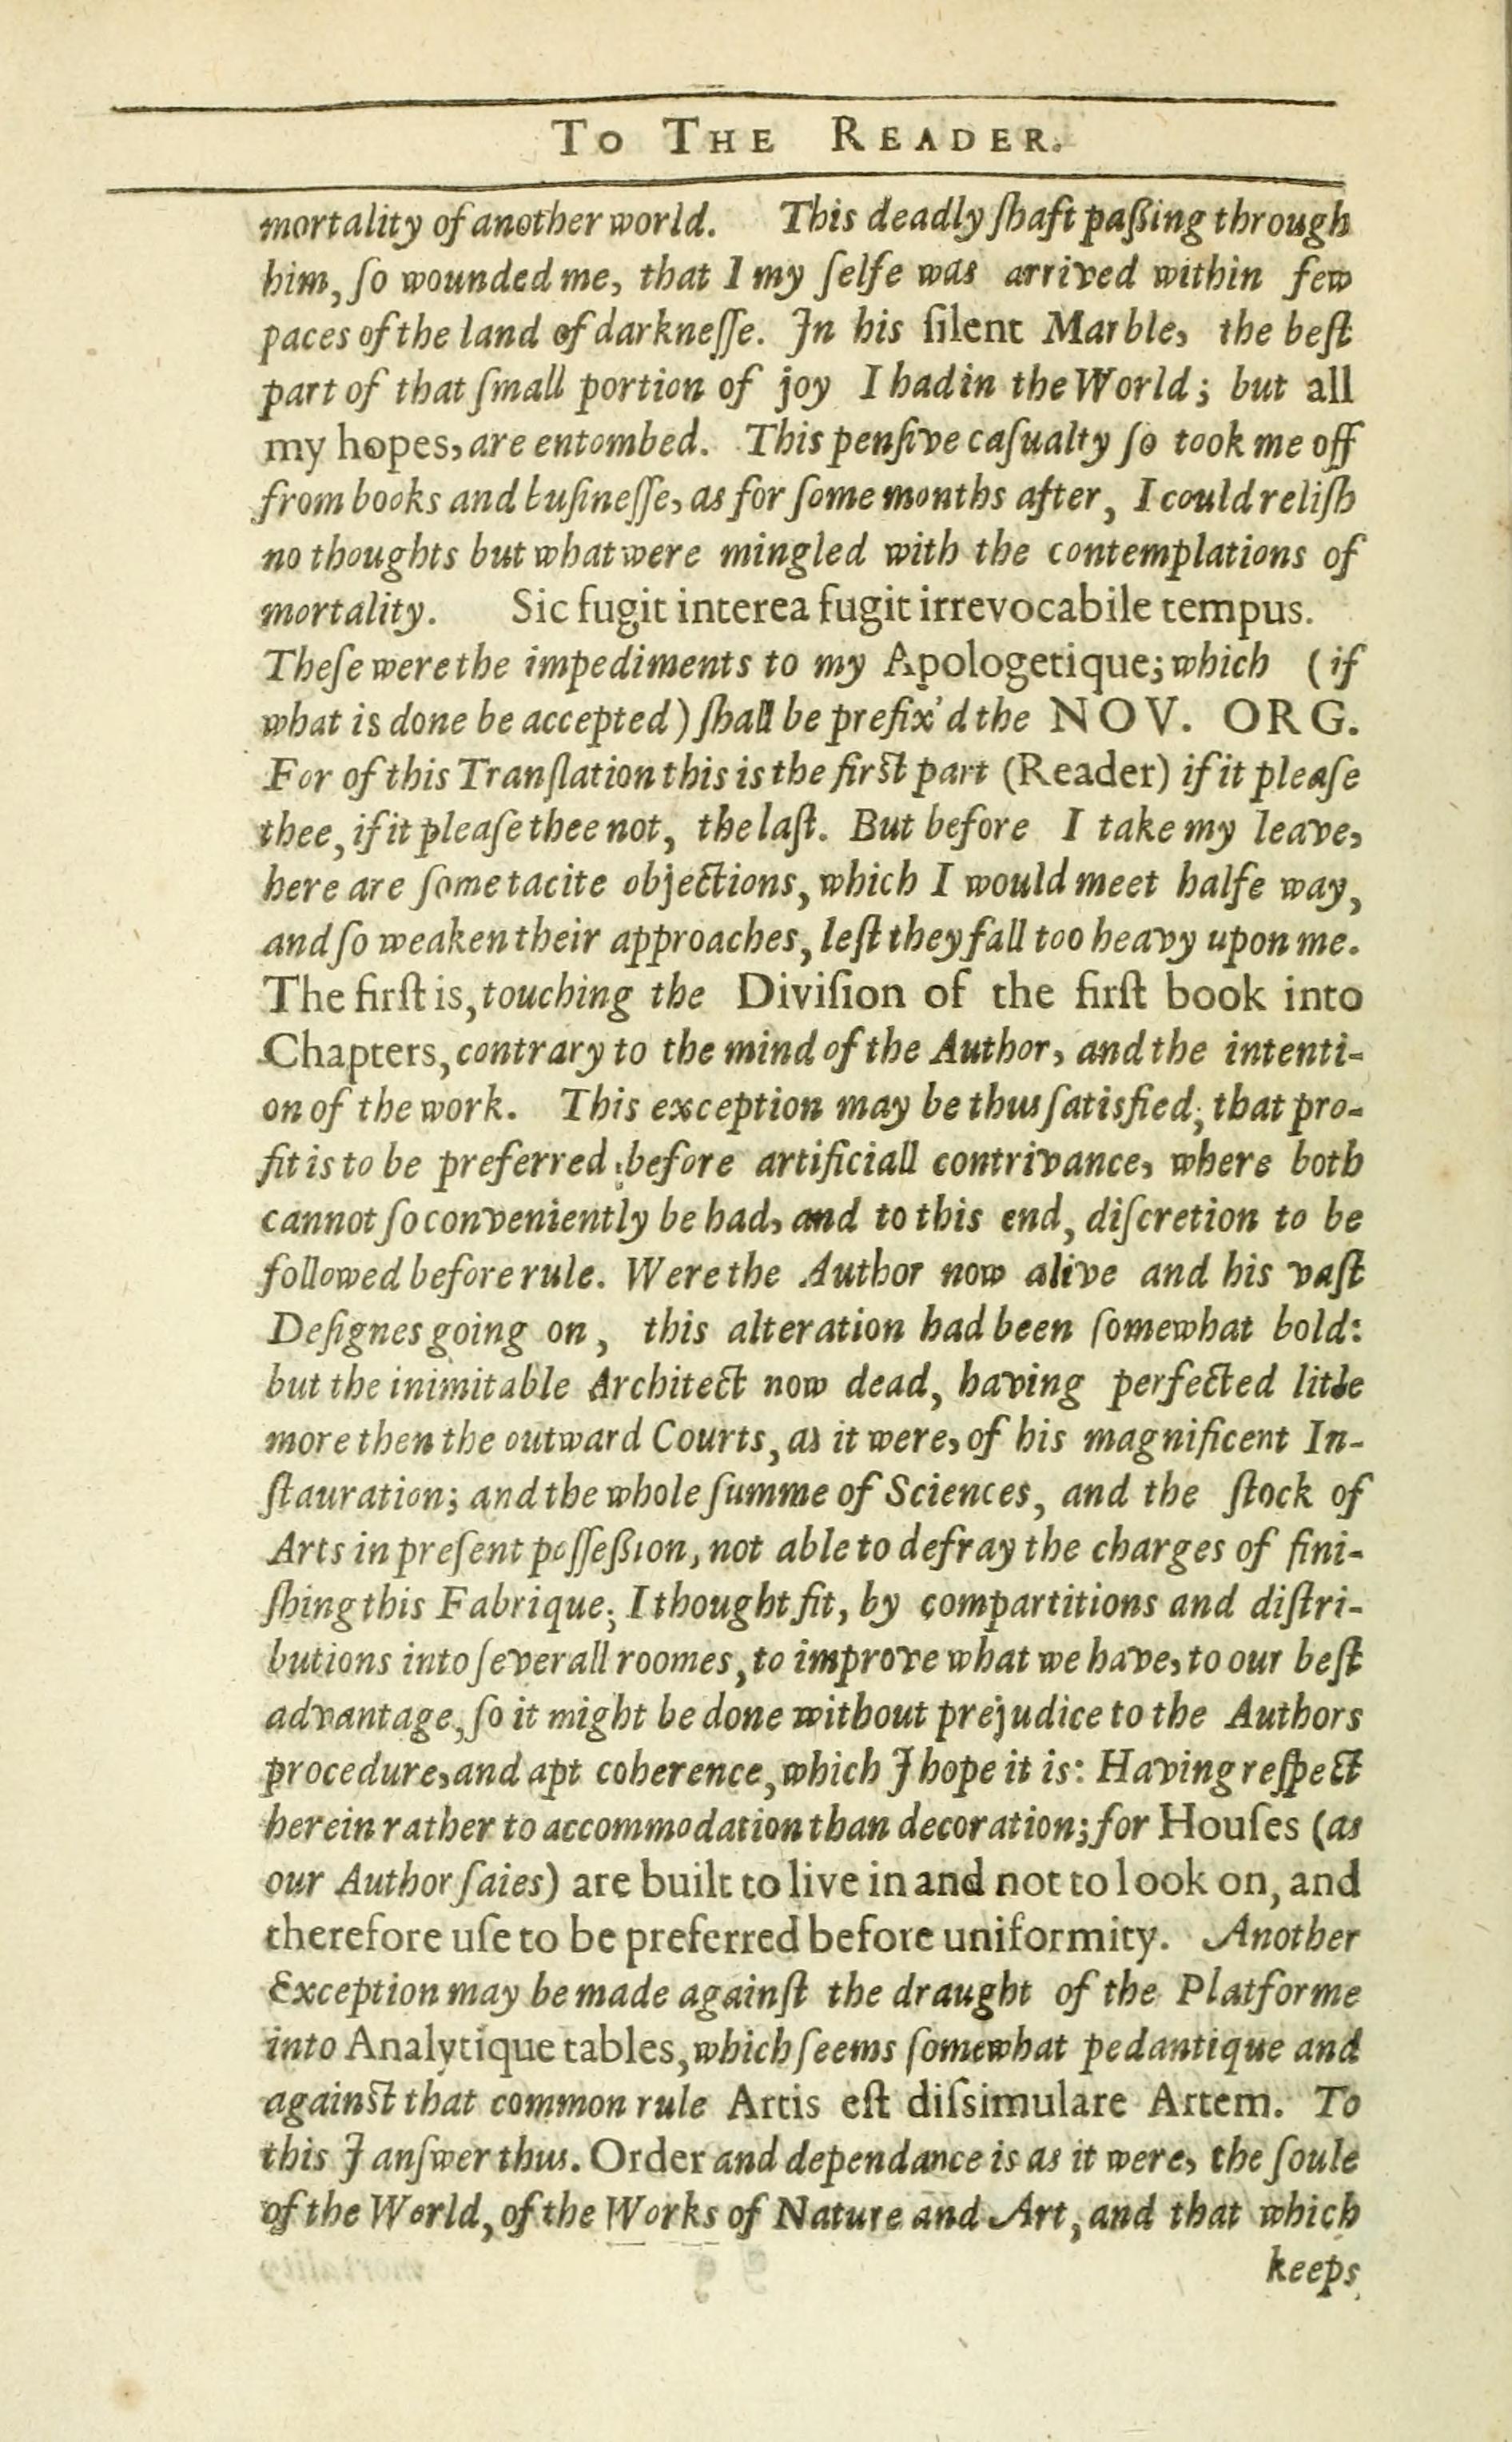 TO THE READER.
mortality of another world. This deadly ſhaft paßing through
him, ſo wounded me, that I my ſelfe was arrived within few
paces of the land of darkneſſe. In his ſilent Marble, the beſt
part of that ſmall portion of joy I had in the World; but all
my hopes, are entombed. This penſive caſualty ſo took me off
from books and buſineſſe, as for ſome months after, I could reliſh
no thoughts but what were mingled with the contemplations of
mortality. Sic fugit interea fugit irrevocabile tempus.
Theſe were the impediments to my Apologetique; which (if
what is done be accepted) ſhall be prefix'd the NOV. ORG.
For of this Tranſlation this is the firſt part (Reader) if it pleaſe
thee, if it pleaſe thee not, the laſt. But before I take my leave,
here are ſome tacite objections, which I would meet halfe way,
and ſo weaken their approaches, leſt they fall too heavy upon me.
The firſt is, touching the Diviſion of the firſt book into
Chapters, contrary to the mind of the Author, and the intenti-
on of the work. This exception may be thus ſatisfied; that pro-
fit is to be preferred before artificiall contrivance, where both
cannot ſo conveniently be had, and to this end, diſcretion to be
followed before rule. Were the Author now alive and his vaſt
Deſignes going on, this alteration had been ſomewhat bold:
but the inimitable Architect now dead, having perfected little
more then the outward Courts, as it were, of his magnificent In-
ſtauration; and the whole ſumme of Sciences, and the ſtock of
Arts in preſent poſſeßion, not able to defray the charges of fini-
ſhing this Fabrique; I thought fit, by compartitions and diſtri-
butions into ſeverall roomes, to improve what we have, to our beſt
advantage, ſo it might be done without prejudice to the Authors
procedure, and apt coherence, which I hope it is: Having reſpect
herein rather to accommodation than decoration; for Houſes (as
our Author ſaies) are built to live in and not to look on, and
therefore uſe to be preferred before uniformity. Another
Exception may be made againſt the draught of the Platforme
into Analytique tables, which ſeems ſomewhat pedantique and
againſt that common rule Artis eſt diſsimulare Artem. To
this I anſwer thus. Order and dependance is as it were, the ſoule
of the World, of the Works of Nature and Art, and that which
keeps